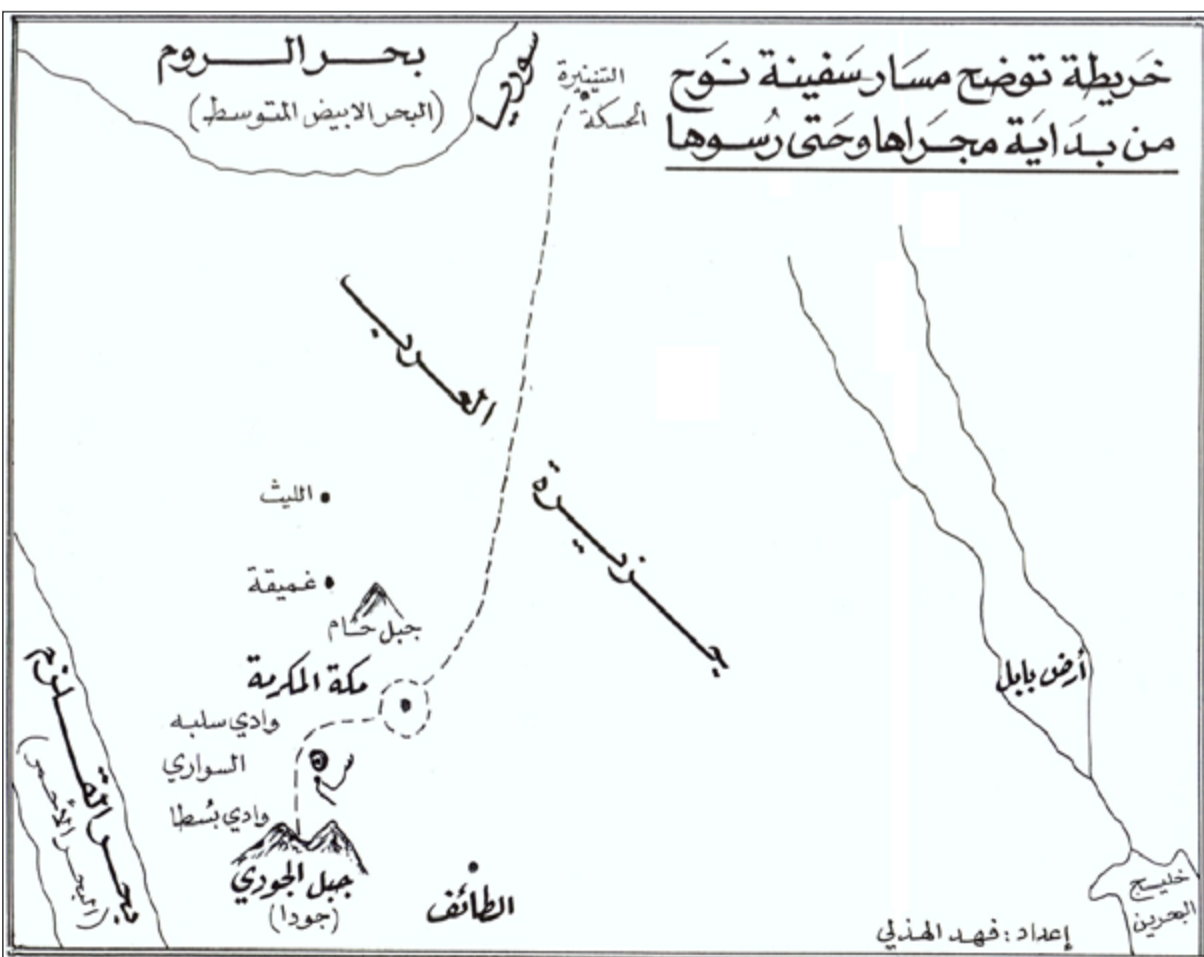 خريطة توضح مسار سفينة نوح
من بداية مجراها وحتى رسوها
بحر الروم
(البحر الابيض المتوسط)
سوريا
التنينيرة
الحسكة
جزيرة
العرب
الليث
غميقة
جبل حشام
مكة المكرمة
وادي سلبه
السواري
وادي بُسطا
جبل الجودي
(جودا)
الطائف
بحر القلزم
(البحر الأحمر)
أرض بابل
خليج
البحرين
إعداد : فهد الهذلي